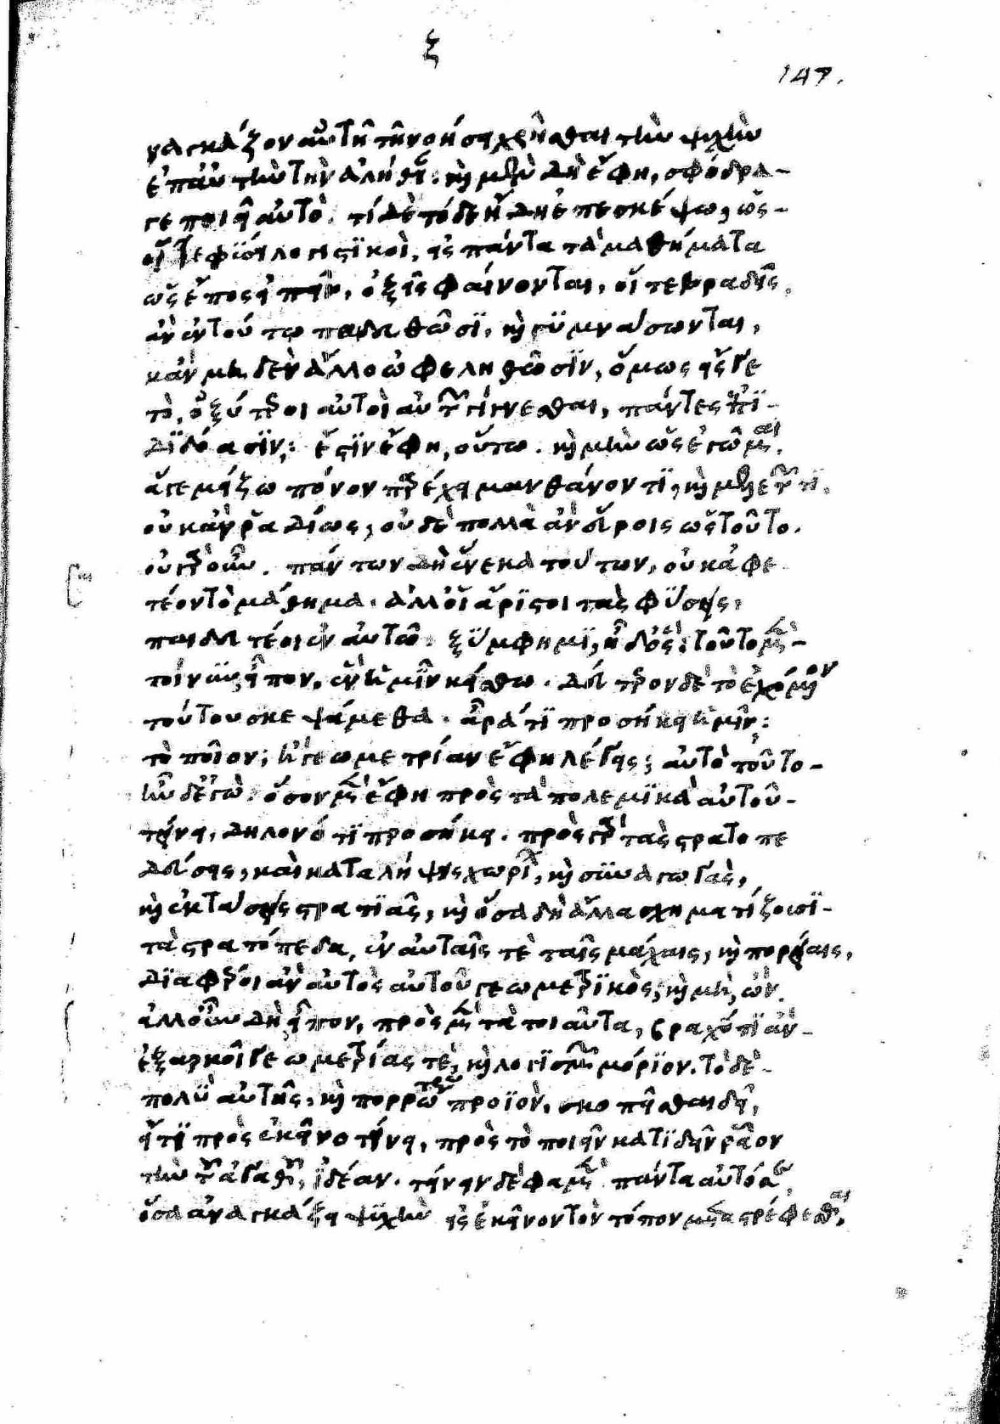 ξ
147.
ναγκάζον αὐτῆ τῆ νοήσει χρῆσθαι τὴν ψυχὴν
ἐπ' αὐτὴν τὴν ἀλήθειαν: καὶ μὲν δὴ ἔφη, σφόδρα
γε ποιεῖ αὐτὸ. τί δὲ τόδε ἤδη ἐπεσκέψω, ὡς
οἵ τε φύσει λογιστικοὶ, εἰς πάντα τὰ μαθήματα
ὡς ἔπος εἰπεῖν, ὀξεῖς φαίνονται, οἵ τε βραδεῖς,
ἂν ἐν τούτω παιδευθῶσι, καὶ γυμνάσωνται,
κἂν μηδὲν ἄλλο ὠφεληθῶσιν, ὅμως εἴς γε
τὸ, ὀξύτεροι αὐτοὶ αὑτῶν γίγνεσθαι, πάντες ἐπι-
διδόασιν: ἔστιν ἔφη, οὕτω. καὶ μὴν ὡς ἐγῶμαι,
ἅ γε μείζω πόνον παρέχει μανθάνοντι, καὶ μελετῶντι,
οὐκ ἂν ῥαδίως, οὐδὲ πολλὰ ἂν εὕροις ὡς τοῦτο.
οὐ γὰρ οὖν. πάντων δὴ ἕνεκα τούτων, οὐκ ἀφε
τέον τὸ μάθημα. ἀλλ' οἱ ἄριστοι τὰς φύσεις,
παιδευτέοι ἐν αὐτῶ. ξύμφημι, ἦ δ' ὅς: τοῦτο μὲν
τοίνυν, εἶπον, ἓν ἡμῖν κείσθω. δεύτερον δὲ τὸ ἐχόμενον
τούτου σκεψώμεθα. ἆρά τι προσήκει ἡμῖν:
τὸ ποῖον; ἢ γεωμετρίαν ἔφη λέγεις; αὐτὸ τοῦτο
ἦν δ' ἐγὼ. ὅσον μὲν ἔφη πρὸς τὰ πολεμικὰ αὐτοῦ
τείνει, δηλονότι προσήκει. πρὸς γὰρ τὰς στρατοπε
δεύσεις, καὶ καταλήψεις χωρίων, καὶ συναγωγὰς,
καὶ ἐκτάσεις στρατιᾶς, καὶ ὅσα δὴ ἄλλα σχηματίζουσι
τὰ στρατόπεδα, ἐν αὐταῖς τὲ ταῖς μάχαις, καὶ πορείαις,
διαφέροι ἂν αὐτὸς αὑτοῦ γεωμετρικὸς, καὶ μὴ, ὤν.
ἀλλ' οὖν δὴ εἶπον, πρὸς μὲν τὰ τοιαῦτα, βραχύ τι ἂν
ἐξαρκοῖ γεωμετρίας τὲ, καὶ λογισμῶν μόριον. τὸ δὲ
πολὺ αὐτῆς, καὶ πορρωτέρω προϊὸν, σκοπεῖσθαι δεῖ,
εἴ τι πρὸς ἐκεῖνο τείνει, πρὸς τὸ ποιεῖν κατιδεῖν ῥᾶον
τὴν τοῦ ἀγαθοῦ, ἰδέαν. τείνειν δὲ φαμὲν πάντα αὐτόσε,
ὅσα ἀναγκάζει ψυχὴν εἰς ἐκεῖνον τὸν τόπον μεταστρέφεσθαι,